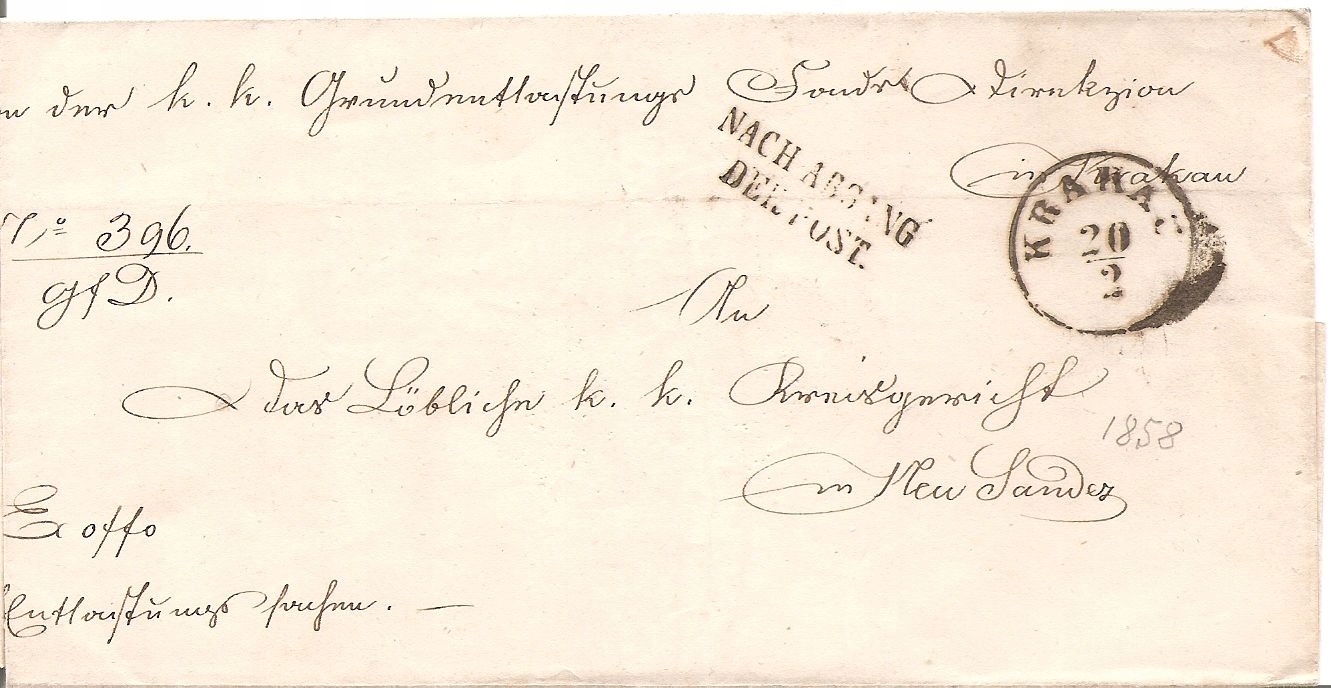 n der k. k. Grundentlastungs Fonds Direkzion
in Krakau
NACH ABGANG
DER POST.
KRAKAU
20
2
N.º 396.
gfD.
An
das Löbliche k. k. Kreisgericht
1858
in Neu Sandez
Ex offo
Entlastungs sachen. —